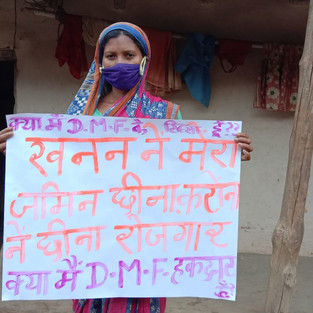 क्या मैं D.M.F के हूँ??
खनन ने मेरा
जमिन छीना,करोना
ने छीना रोजगार
क्या मैं D.M.F. हकदार
हूँ